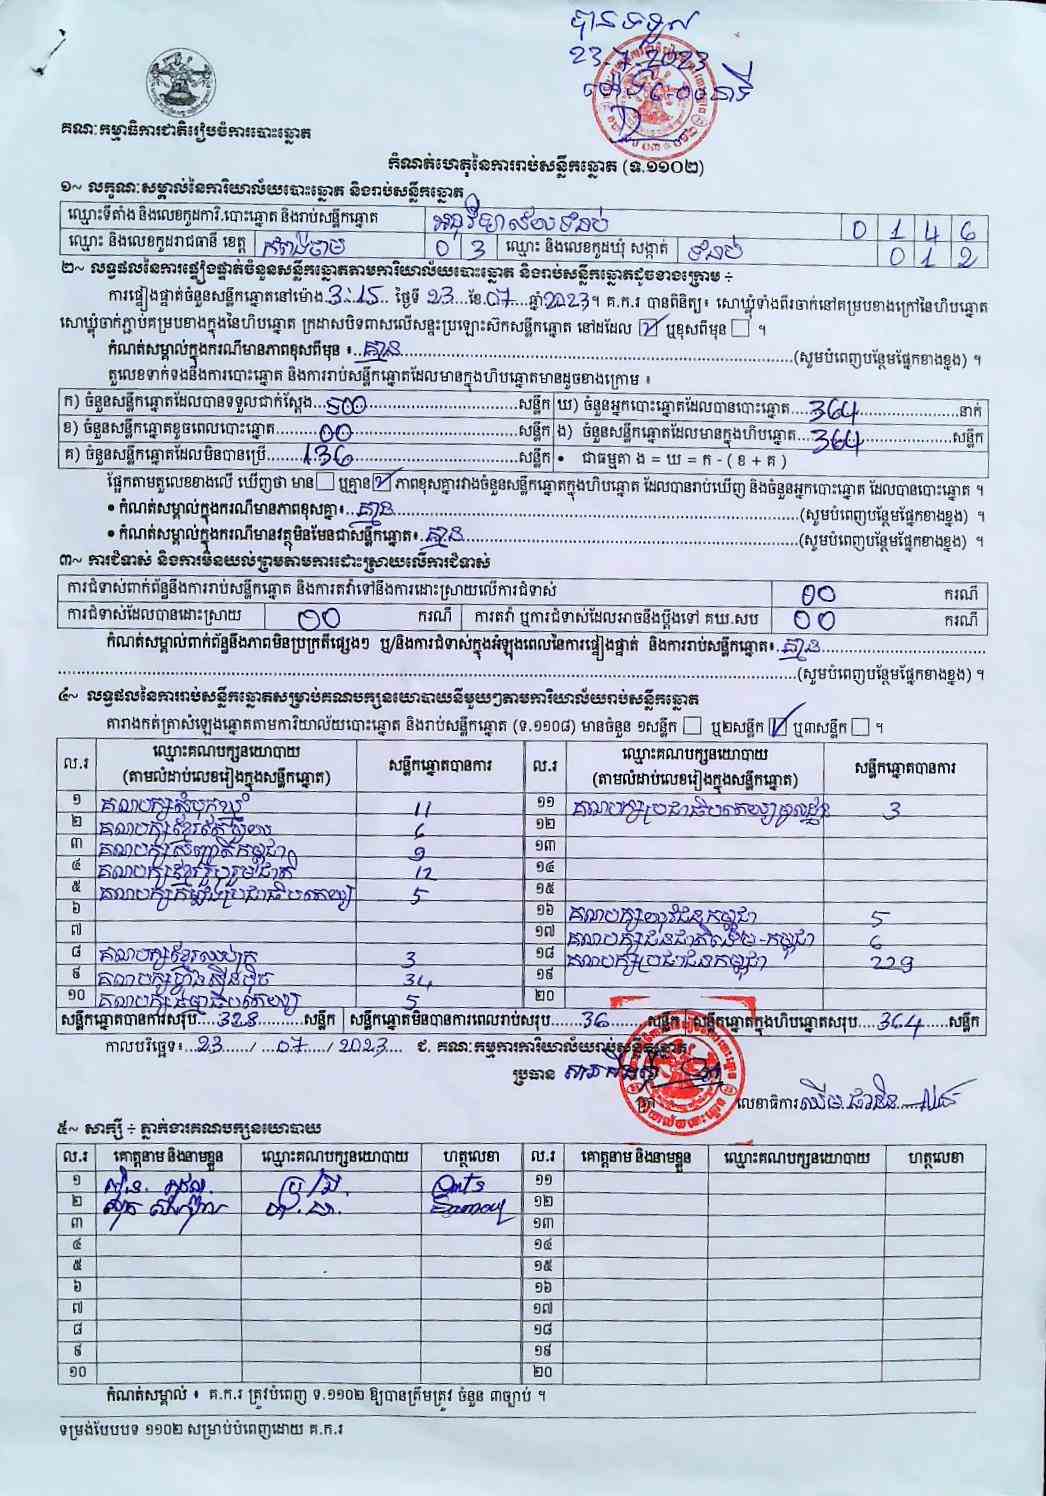 បានទទួល
23.7.2023
គណៈកម្មាធិការជាតិរៀបចំការបោះឆ្នោត
កំណត់ហេតុនៃការរាប់សន្លឹកឆ្នោត (ទ.១១០២)
១~ លក្ខណៈសម្គាល់នៃការិយាល័យបោះឆ្នោត និងរាប់សន្លឹកឆ្នោត
ឈ្មោះទីតាំង និងលេខកូដការិ.បោះឆ្នោត និងរាប់សន្លឹកឆ្នោត អនុវិទ្យាល័យទំនប់ 0 1 4 6
ឈ្មោះ និងលេខកូដរាជធានី ខេត្ត កំពង់ចាម 0 3 ឈ្មោះ និងលេខកូដឃុំ សង្កាត់ ទំនប់ 0 1 2
២~ លទ្ធផលនៃការផ្ទៀងផ្ទាត់ចំនួនសន្លឹកឆ្នោតតាមការិយាល័យបោះឆ្នោត និងរាប់សន្លឹកឆ្នោតដូចខាងក្រោម ÷
ការផ្ទៀងផ្ទាត់ចំនួនសន្លឹកឆ្នោតនៅម៉ោង 3:15 ថ្ងៃទី 23 ខែ 07 ឆ្នាំ 2023។ គ.ក.រ បានពិនិត្យ៖ សោឃ្លុំទាំងពីរចាក់នៅគម្របខាងក្រៅនៃហិបឆ្នោត
សោឃ្លុំចាក់ភ្ជាប់គម្របខាងក្នុងនៃហិបឆ្នោត ក្រដាសបិទពាសលើសន្ទះប្រឡោះស៊កសន្លឹកឆ្នោត នៅដដែល ☑ ឬខុសពីមុន ☐ ។
កំណត់សម្គាល់ក្នុងករណីមានភាពខុសពីមុន ៖ គ្មាន (សូមបំពេញបន្ថែមផ្នែកខាងខ្នង) ។
តួលេខទាក់ទងនឹងការបោះឆ្នោត និងការរាប់សន្លឹកឆ្នោតដែលមានក្នុងហិបឆ្នោតមានដូចខាងក្រោម ៖
ក) ចំនួនសន្លឹកឆ្នោតដែលបានទទួលជាក់ស្ដែង 500 សន្លឹក ឃ) ចំនួនអ្នកបោះឆ្នោតដែលបានបោះឆ្នោត 364 នាក់
ខ) ចំនួនសន្លឹកឆ្នោតខូចពេលបោះឆ្នោត 00 សន្លឹក ង) ចំនួនសន្លឹកឆ្នោតដែលមានក្នុងហិបឆ្នោត 364 សន្លឹក
គ) ចំនួនសន្លឹកឆ្នោតដែលមិនបានប្រើ 136 សន្លឹក • ជាធម្មតា ង = ឃ = ក - ( ខ + គ )
ផ្អែកតាមតួលេខខាងលើ ឃើញថា មាន ☐ ឬគ្មាន ☑ ភាពខុសគ្នារវាងចំនួនសន្លឹកឆ្នោតក្នុងហិបឆ្នោត ដែលបានរាប់ឃើញ និងចំនួនអ្នកបោះឆ្នោត ដែលបានបោះឆ្នោត ។
• កំណត់សម្គាល់ក្នុងករណីមានភាពខុសគ្នា៖ គ្មាន (សូមបំពេញបន្ថែមផ្នែកខាងខ្នង) ។
• កំណត់សម្គាល់ក្នុងករណីមានវត្ថុមិនមែនជាសន្លឹកឆ្នោត៖ គ្មាន (សូមបំពេញបន្ថែមផ្នែកខាងខ្នង) ។
៣~ ការជំទាស់ និងការមិនយល់ព្រមតាមការដោះស្រាយលើការជំទាស់
ការជំទាស់ពាក់ព័ន្ធនឹងការរាប់សន្លឹកឆ្នោត និងការតវ៉ាទៅនឹងការដោះស្រាយលើការជំទាស់ 00 ករណី
ការជំទាស់ដែលបានដោះស្រាយ 00 ករណី ការតវ៉ា ឬការជំទាស់ដែលអាចនឹងប្ដឹងទៅ គឃ.សប 00 ករណី
កំណត់សម្គាល់ពាក់ព័ន្ធនឹងភាពមិនប្រក្រតីផ្សេងៗ ឬ/និងការជំទាស់ក្នុងអំឡុងពេលនៃការផ្ទៀងផ្ទាត់ និងការរាប់សន្លឹកឆ្នោត៖ គ្មាន
(សូមបំពេញបន្ថែមផ្នែកខាងខ្នង) ។
៤~ លទ្ធផលនៃការរាប់សន្លឹកឆ្នោតសម្រាប់គណបក្សនយោបាយនីមួយៗតាមការិយាល័យរាប់សន្លឹកឆ្នោត
តារាងកត់ត្រាសំឡេងឆ្នោតតាមការិយាល័យបោះឆ្នោត និងរាប់សន្លឹកឆ្នោត (ទ.១១០៨) មានចំនួន ១សន្លឹក ☐ ឬ២សន្លឹក ☑ ឬ៣សន្លឹក ☐ ។
ល.រ ឈ្មោះគណបក្សនយោបាយ (តាមលំដាប់លេខរៀងក្នុងសន្លឹកឆ្នោត) សន្លឹកឆ្នោតបានការ ល.រ ឈ្មោះគណបក្សនយោបាយ (តាមលំដាប់លេខរៀងក្នុងសន្លឹកឆ្នោត) សន្លឹកឆ្នោតបានការ
១ គណបក្សសំបុកឃ្មុំ 11 ១១ គណបក្សប្រជាធិបតេយ្យមូលដ្ឋាន 3
២ គណបក្សខ្មែរអភិវឌ្ឍន៍ 6 ១២
៣ គណបក្សសញ្ជាតិកម្ពុជា 9 ១៣
៤ គណបក្សខ្មែររួបរួមជាតិ 12 ១៤
៥ គណបក្សកម្លាំងប្រជាធិបតេយ្យ 5 ១៥
៦ ១៦ គណបក្សយុវជនកម្ពុជា 5
៧ ១៧ គណបក្សជនជាតិដើម-កម្ពុជា 6
៨ គណបក្សខ្មែរឈប់ក្រ 3 ១៨ គណបក្សប្រជាជនកម្ពុជា 229
៩ គណបក្សហ្វ៊ុនស៊ិនប៉ិច 34 ១៩
១០ គណបក្សធម្មាធិបតេយ្យ 5 ២០
សន្លឹកឆ្នោតបានការសរុប 328 សន្លឹក សន្លឹកឆ្នោតមិនបានការពេលរាប់សរុប 36 សន្លឹក សន្លឹកឆ្នោតក្នុងហិបឆ្នោតសរុប 364 សន្លឹក
កាលបរិច្ឆេទ៖ 23 / 07 / 2023 ជ. គណៈកម្មការការិយាល័យរាប់សន្លឹកឆ្នោត
ប្រធាន
ត្រា លេខាធិការ
៥~ សាក្សី ÷ ភ្នាក់ងារគណបក្សនយោបាយ
ល.រ គោត្តនាម និងនាមខ្លួន ឈ្មោះគណបក្សនយោបាយ ហត្ថលេខា ល.រ គោត្តនាម និងនាមខ្លួន ឈ្មោះគណបក្សនយោបាយ ហត្ថលេខា
១ ១១
២ ១២
៣ ១៣
៤ ១៤
៥ ១៥
៦ ១៦
៧ ១៧
៨ ១៨
៩ ១៩
១០ ២០
កំណត់សម្គាល់ ៖ គ.ក.រ ត្រូវបំពេញ ទ.១១០២ ឱ្យបានត្រឹមត្រូវ ចំនួន ៣ច្បាប់ ។
ទម្រង់បែបបទ ១១០២ សម្រាប់បំពេញដោយ គ.ក.រ